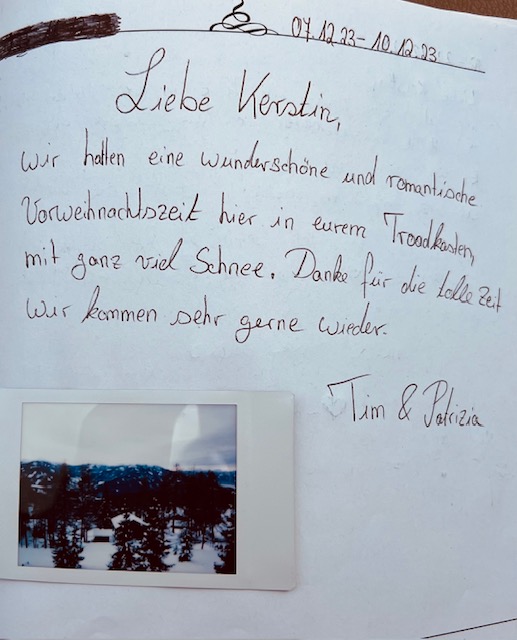 07.12.23-10.12.23
Liebe Kerstin,
wir hatten eine wunderschöne und romantische
Vorweihnachtszeit hier in eurem Troadkasten,
mit ganz viel Schnee. Danke für die tolle Zeit
wir kommen sehr gerne wieder.
Tim & Patrizia